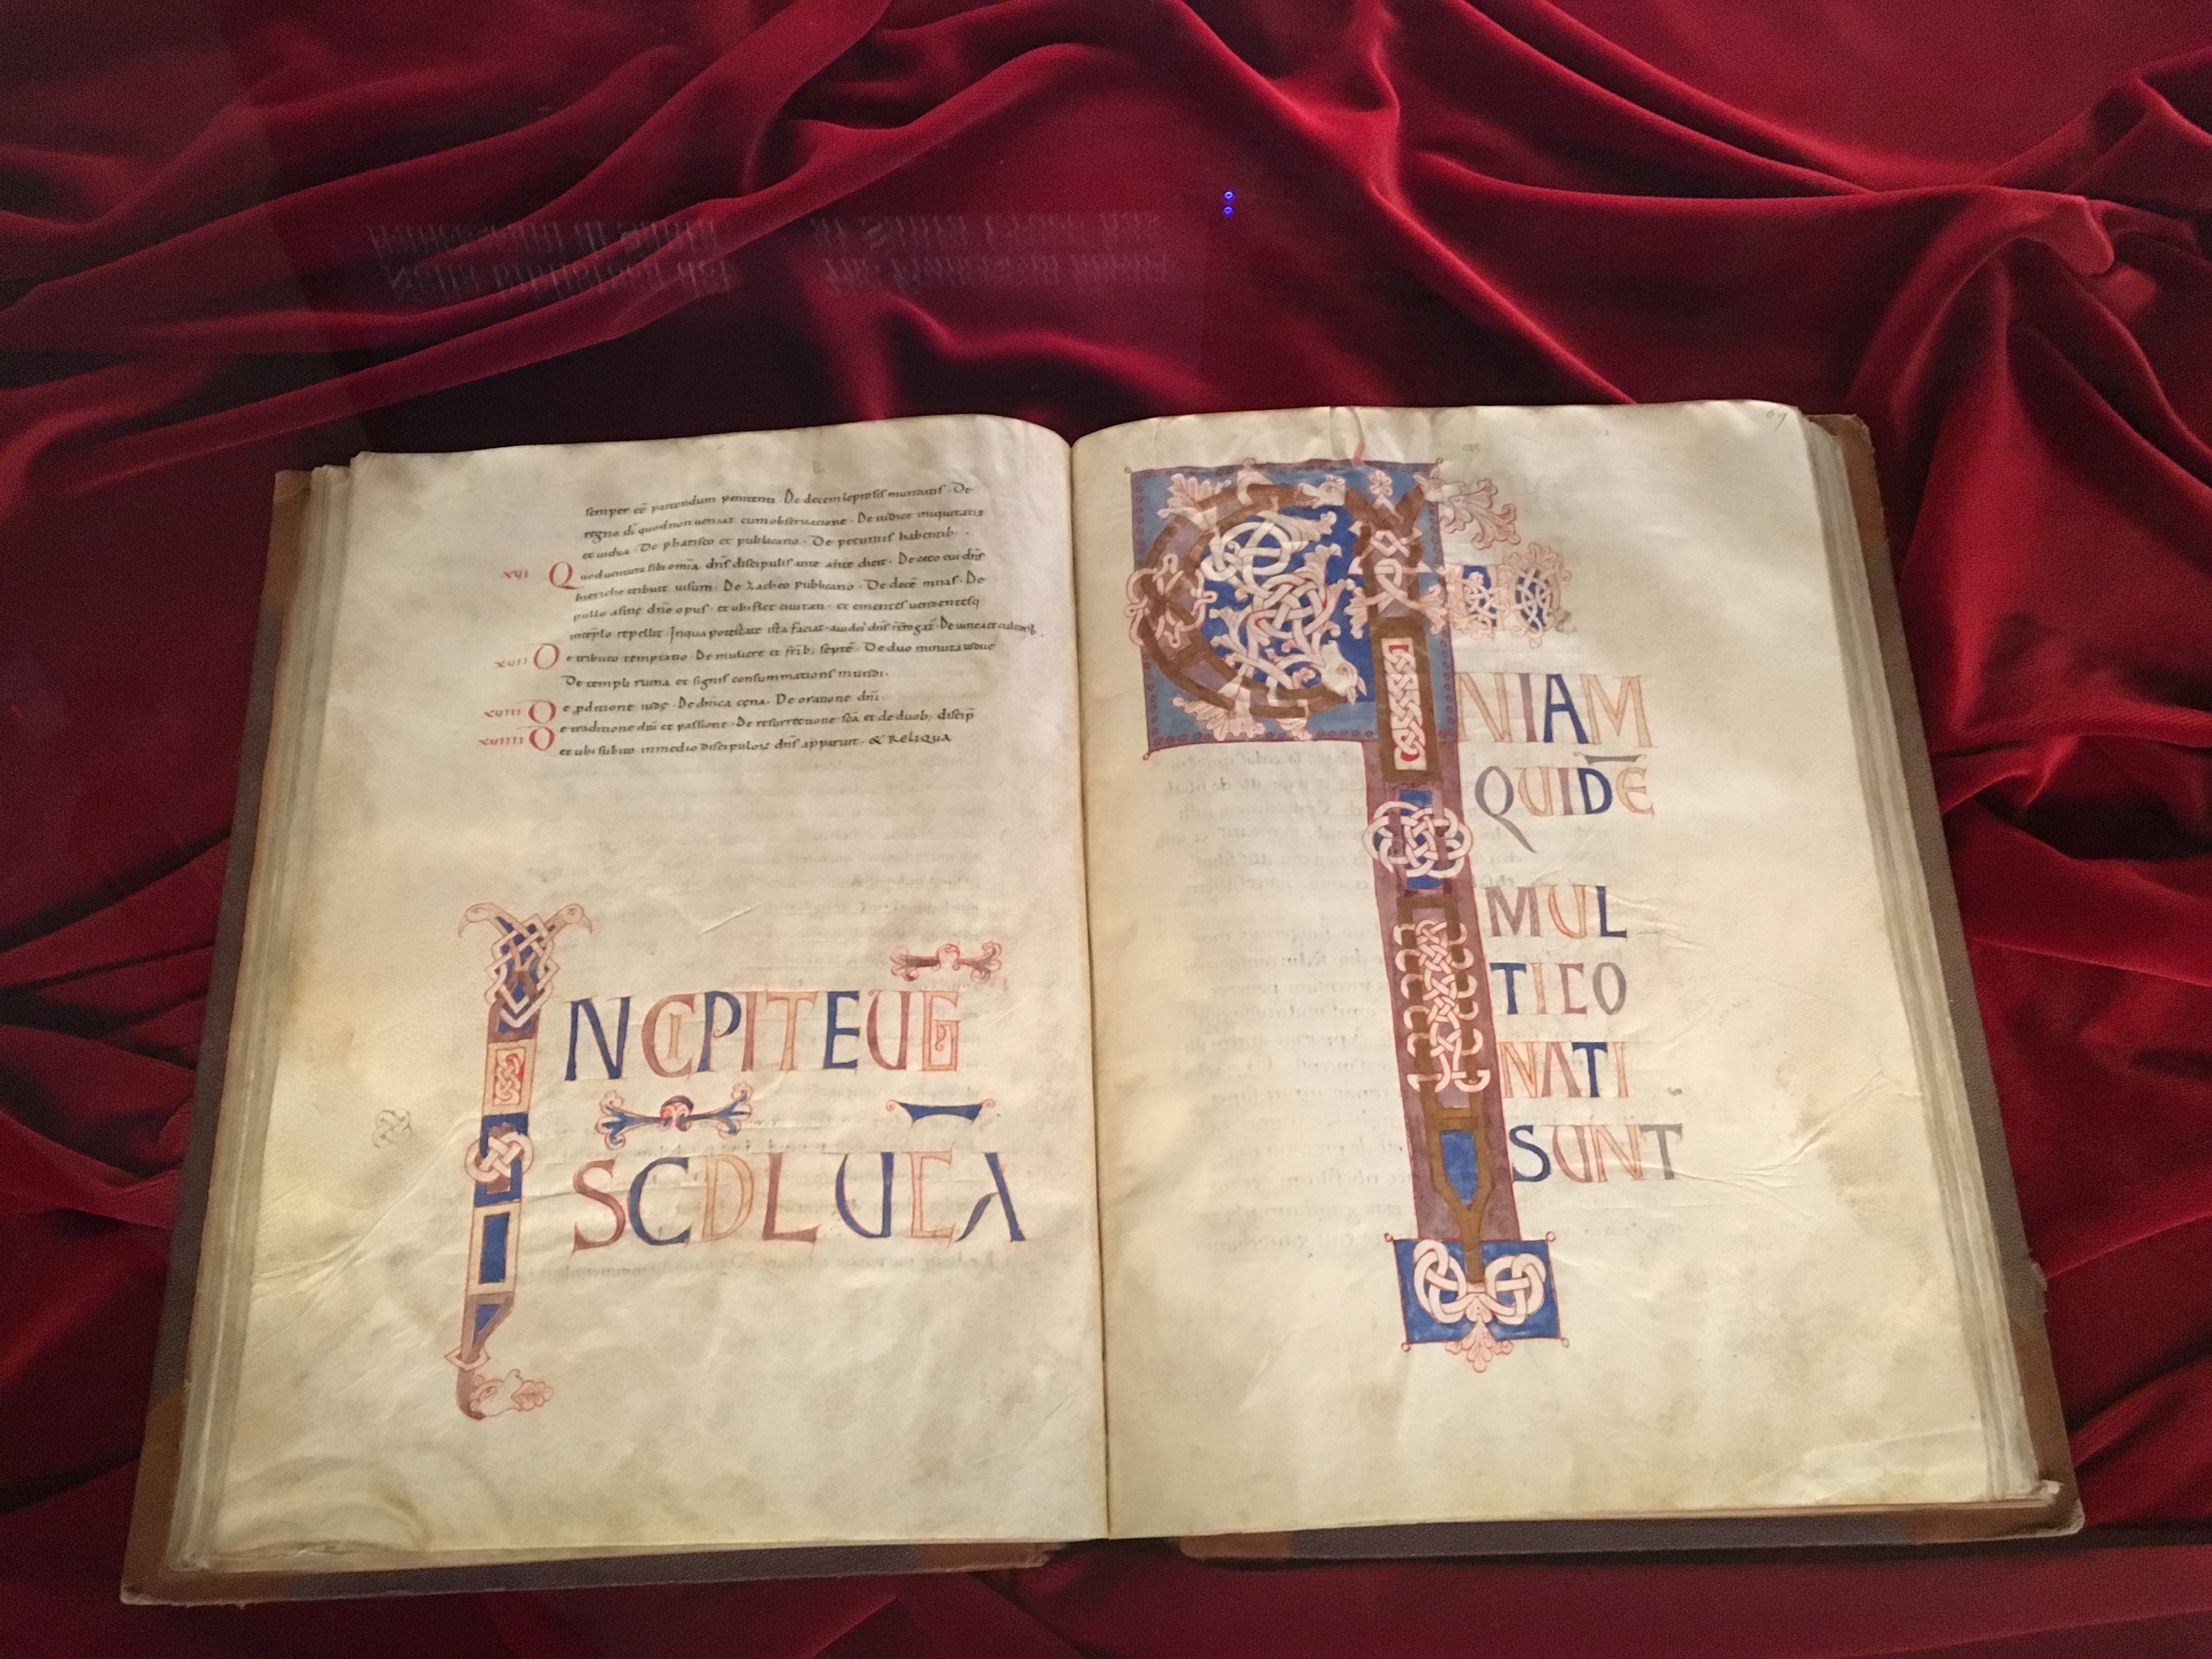 semper eē parcendum penitenti · De decem leprosis mundatis · De
regno dī quod non ueniat cum obseruatione · De iudice iniquitatis
et uidua · De phariseo et publicano · De pecuniis habentib;
xvi Quod uentura sibi omīa dn̄s discipulis ante dicit · De ceco cui dn̄s
hiericho tribuit uisum · De Zacheo publicano · De decē mnas · De
pullo asinę dnō opus · et ubi flet ciuitatē · et ementes uendentesq
intēplo repellit · In qua potestate ista faciat · iudei dn̄s
xvii De tributo temptatio · De muliere et frib; septē · De duo minuta uiduę
De templi ruina et signis consummationis mundi ·
xviii De pditione iudę · De dn̄ica cęna · De oratione dn̄i ·
xviiii De traditione dn̄i et passione · De resurrectione et de duob; discip
et ubi subito in medio discipulorum dn̄s apparuit · & RELIQUA
INCIPIT EUG
SCD LUCĀ
QUONIAM
QUIDĒ
MUL
TI CO
NATI
SUNT
69
Nella biblioteca dei
francescani di Santa
The Franciscan
at Santa Croce has